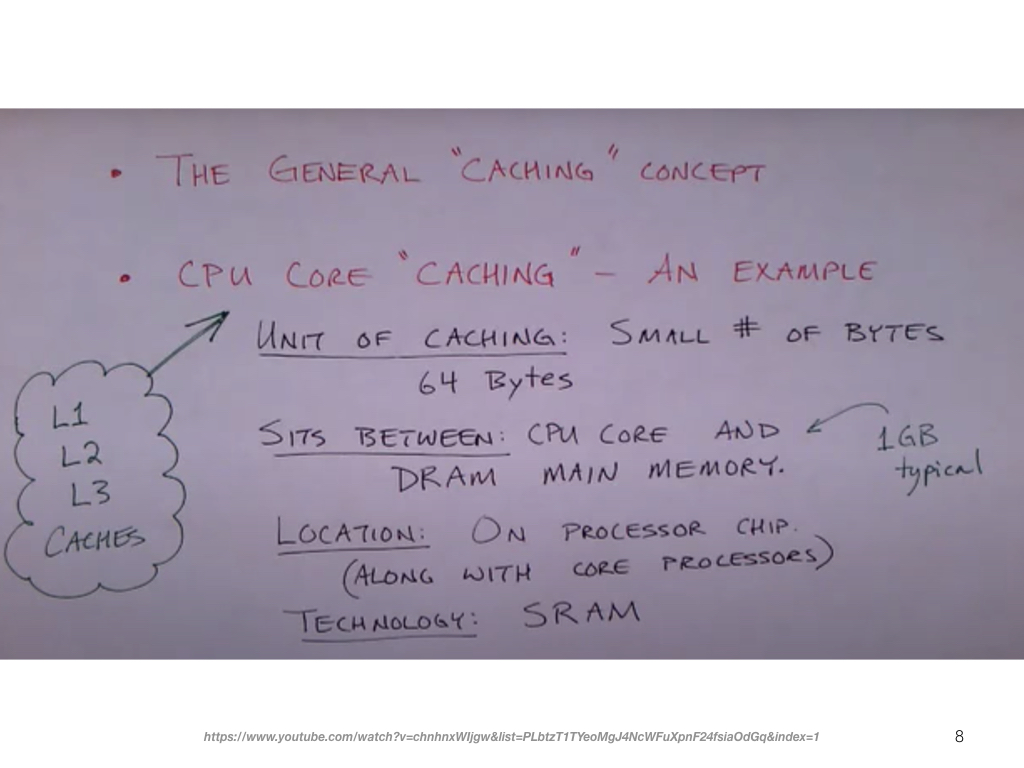 • THE GENERAL "CACHING" CONCEPT
• CPU CORE "CACHING" – AN EXAMPLE
UNIT OF CACHING: SMALL # OF BYTES
64 Bytes
SITS BETWEEN: CPU CORE AND
DRAM MAIN MEMORY.
1GB
typical
LOCATION: ON PROCESSOR CHIP.
(ALONG WITH CORE PROCESSORS)
TECHNOLOGY: SRAM
L1
L2
L3
CACHES
https://www.youtube.com/watch?v=chnhnxWIjgw&list=PLbtzT1TYeoMgJ4NcWFuXpnF24fsiaOdGq&index=1
8